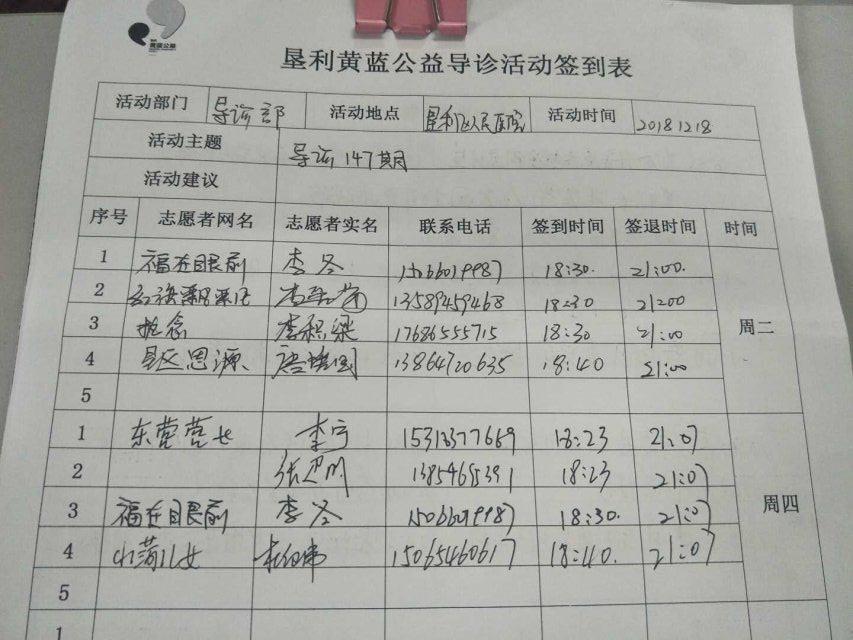 黄蓝公益
垦利黄蓝公益导诊活动签到表
活动部门 导诊部 活动地点 垦利区人民医院 活动时间 20181218
活动主题 导诊147期
活动建议
序号 志愿者网名 志愿者实名 联系电话 签到时间 签退时间 时间
1 福在眼前 李冬 15066019987 18:30. 21:00.
2 13589459468 18:30 21:00
3 李积梁 17686555715 18:30 21:00
4 思源 13864720635 18:40 21:00
5
周二
1 东营营长 李宁 15313377669 18:23 21:07
2 18:23 21:07
3 福在眼前 李冬 15066019987 18:30. 21:07
4 15065460617 18:40. 21:07
5
周四
1